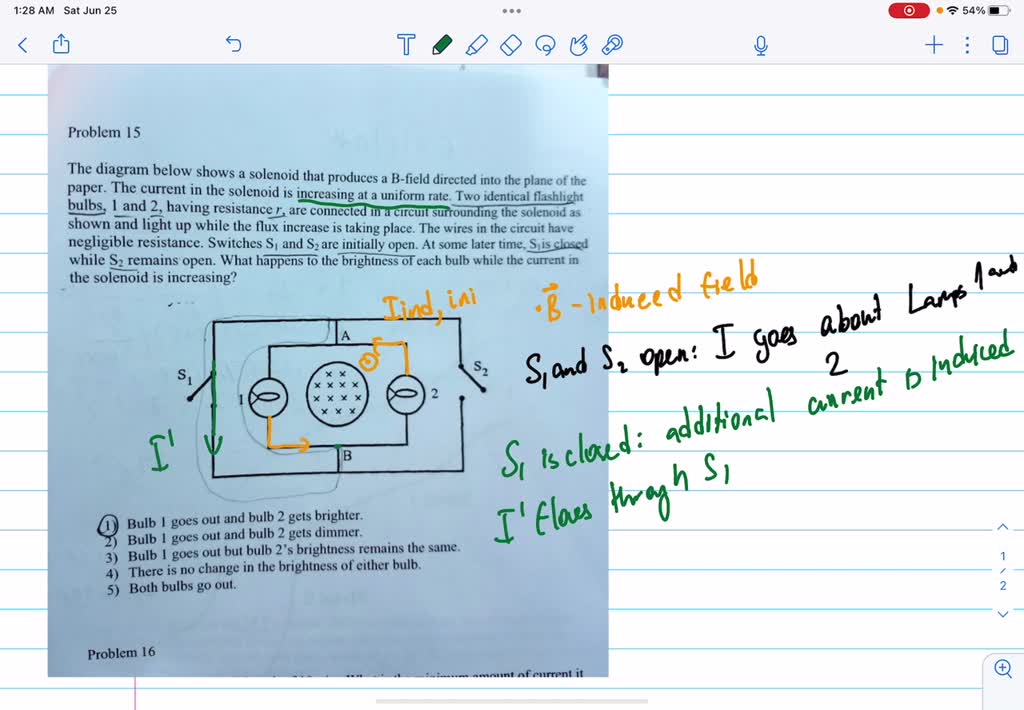 1:28 AM Sat Jun 25
54%
Problem 15
The diagram below shows a solenoid that produces a B-field directed into the plane of the
paper. The current in the solenoid is increasing at a uniform rate. Two identical flashlight
bulbs, 1 and 2, having resistance r, are connected in a circuit surrounding the solenoid as
shown and light up while the flux increase is taking place. The wires in the circuit have
negligible resistance. Switches S1 and S2 are initially open. At some later time, S1 is closed
while S2 remains open. What happens to the brightness of each bulb while the current in
the solenoid is increasing?
Iind, ini
A
S1
S2
1
2
B
I'
·B - Induced field
S1 and S2 open: I goes about Lamps 1 and
2
S1 is closed: additional current is induced
I' flows through S1
1) Bulb 1 goes out and bulb 2 gets brighter.
2) Bulb 1 goes out and bulb 2 gets dimmer.
3) Bulb 1 goes out but bulb 2's brightness remains the same.
4) There is no change in the brightness of either bulb.
5) Both bulbs go out.
Problem 16
amount of current it
1
/
2